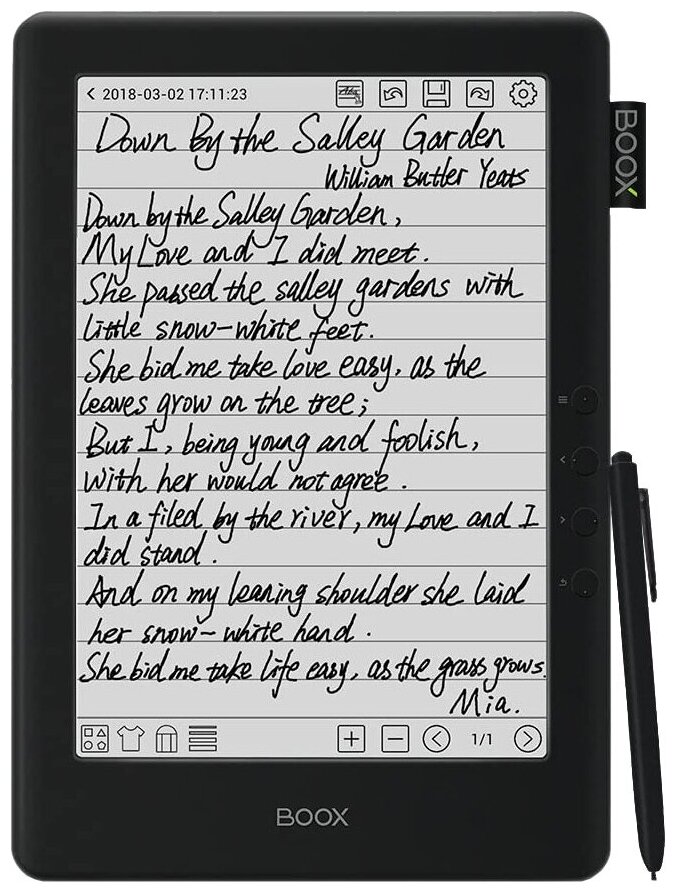 2018-03-02 17:11:23
Down By the Salley Garden
William Butler Yeats
Down by the Salley Garden,
My Love and I did meet.
She passed the salley gardens with
little snow-white feet.
She bid me take love easy, as the
leaves grow on the tree;
But I, being young and foolish,
With her would not agree.
In a filed by the river, my Love and I
did stand.
And on my leaning shoulder she laid
her snow-white hand.
She bid me take life easy, as the grass grows.
Mia.
1/1
BOOX
BOOX